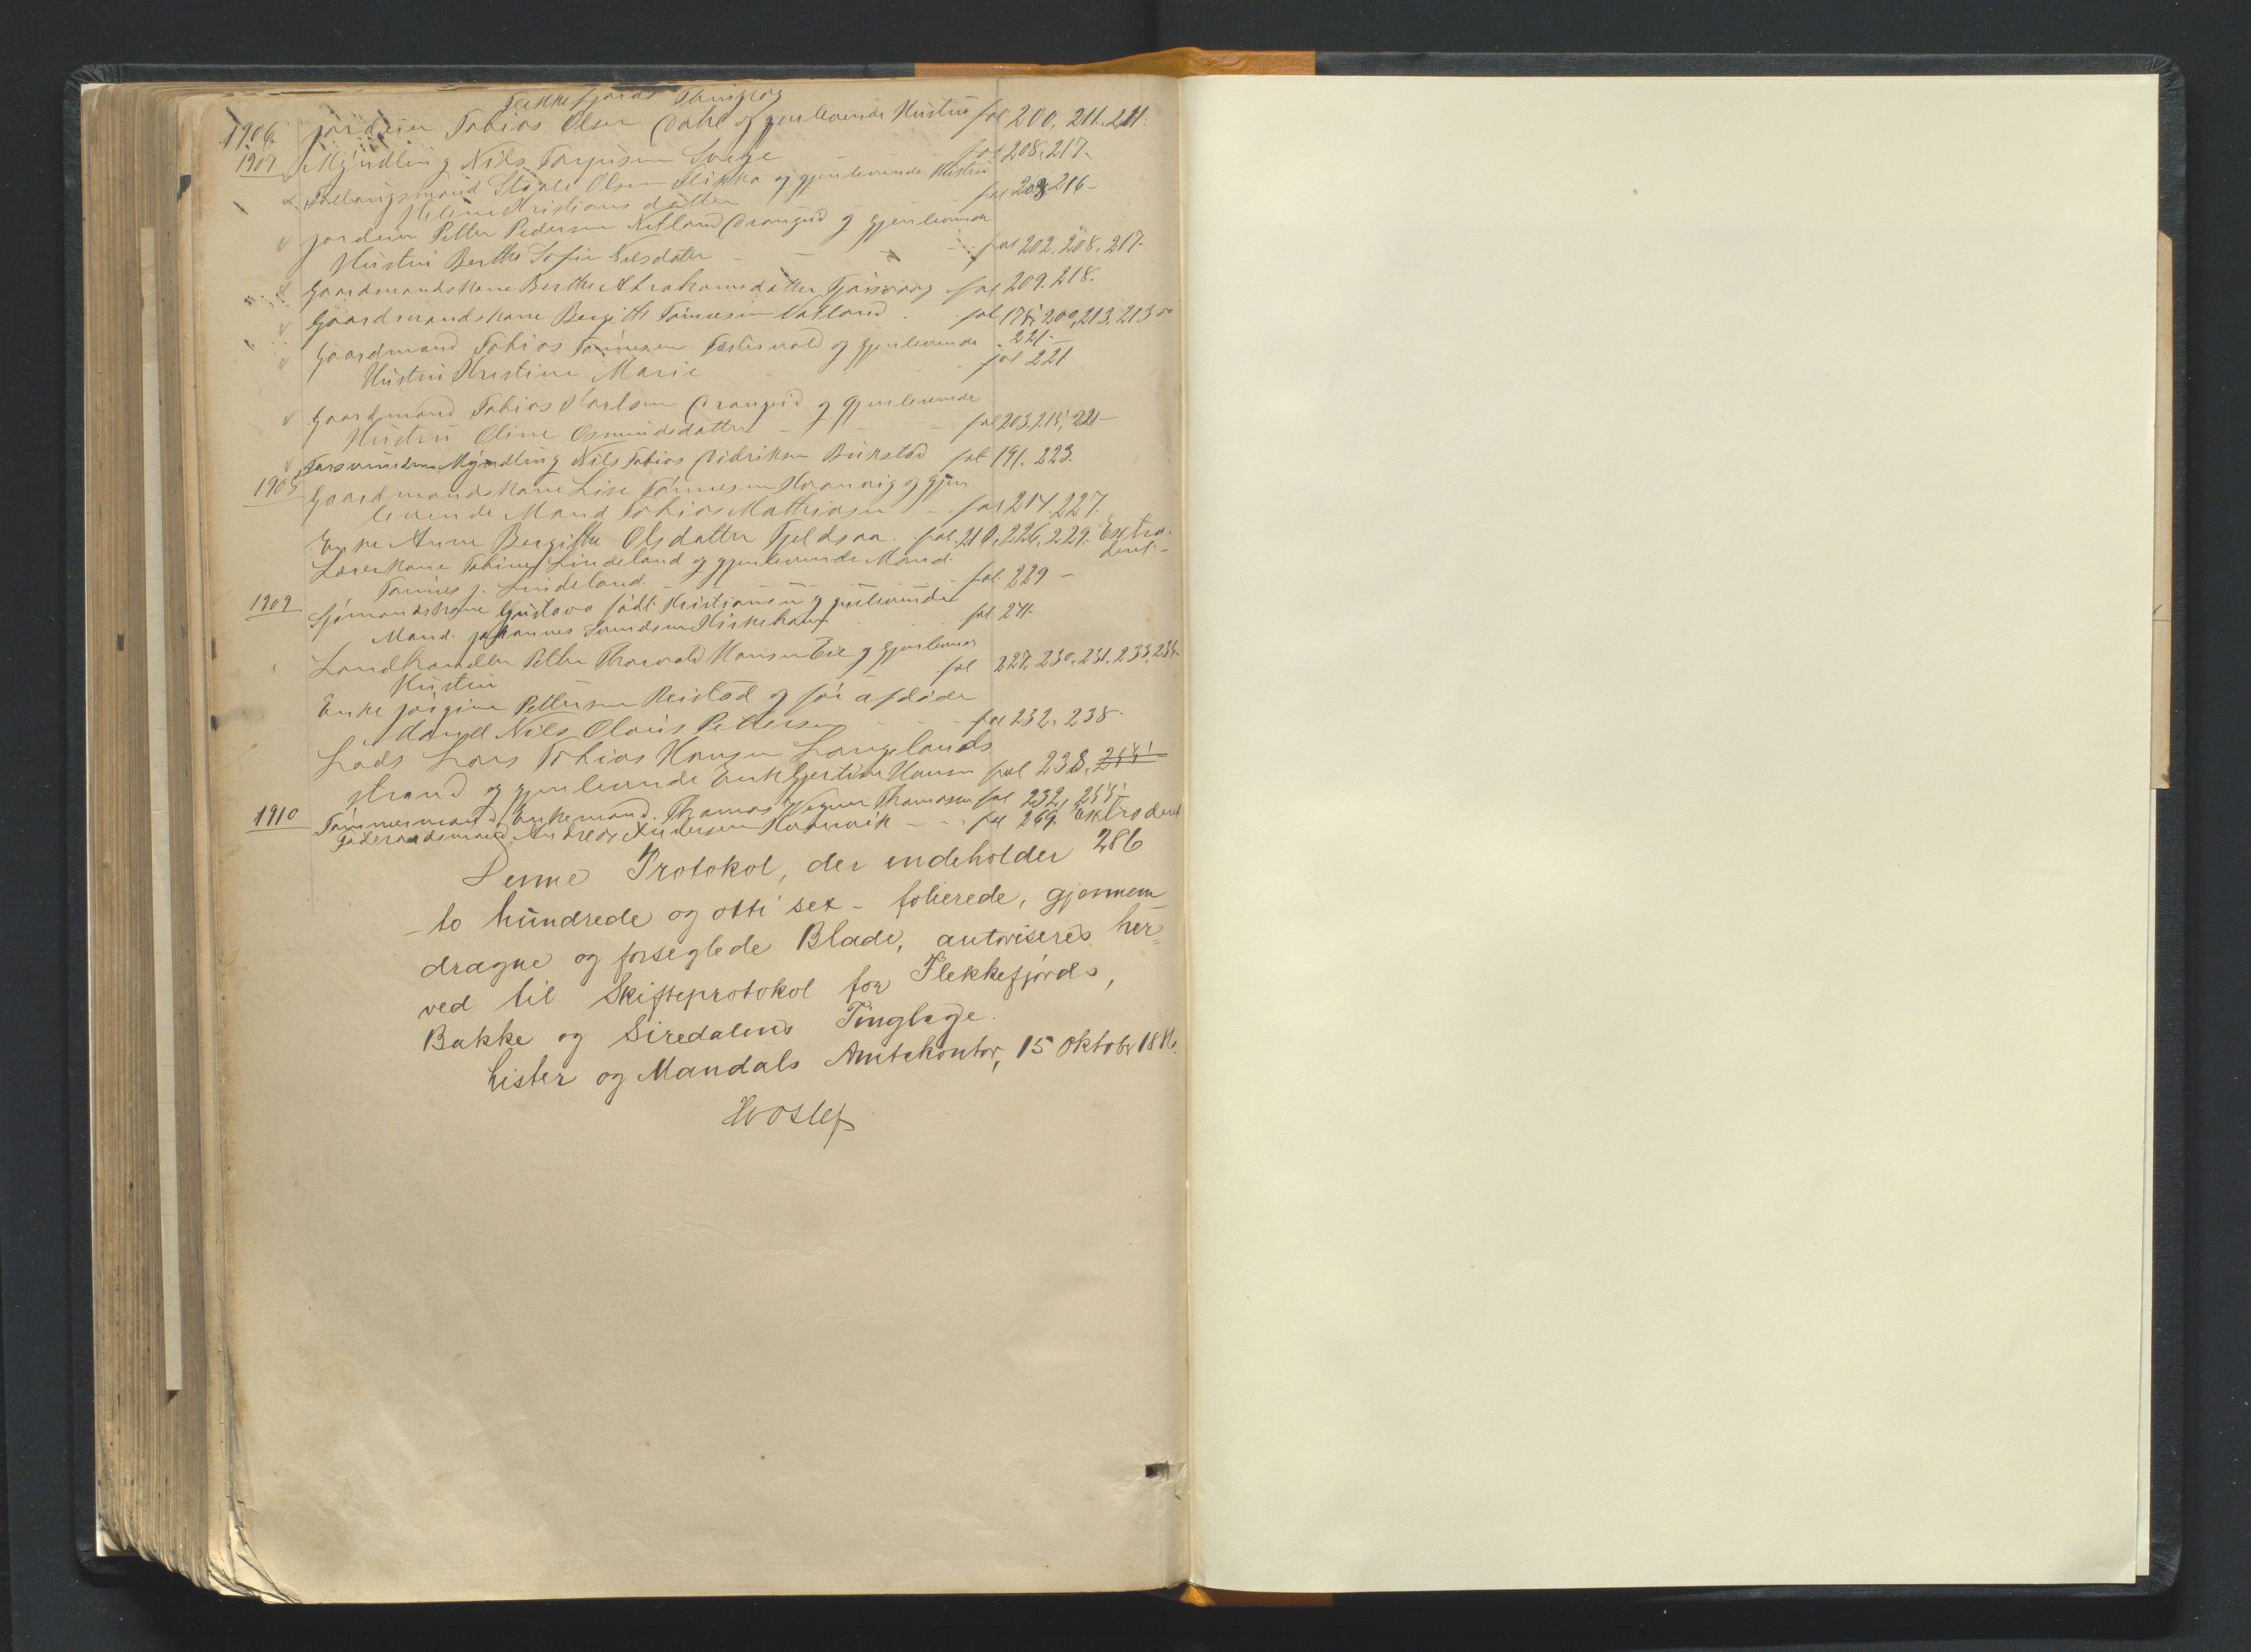 Flekkefjords Thinglag
1906 Jordeier Tobias Olsen Dahl og gjenlevende Hustru fol 200, 211. 211.
1907 Myndling Nils Torgusen fol 208, 217.
Staale Olsen og gjenlevende Hustru
Kristiansdatter fol 208 216 -
Jordeier Petter Pedersen Netland Drangeid og gjenlevende
Hustru Berthe Sofie Nilsdatter - - - fol 202. 208. 217.
Gaardmandskone Berthe Abrahamsdatter fol 209. 218.
Gaardmandskone Bergitte Tønnesen fol 178, 200, 213, 213
221.
Gaardmand Tobias Tønnesen og gjenlevende
Hustru Kristine Marie fol 221
Gaardmand Tobias Karlsen Drangeid og gjenlevende
Hustru Oline Osmundsdatter - fol 203, 215, 221 -
Myndling Nils Tobias Didriksen Birkeland fol 191. 223.
1908 Gaardmandskone Lise Tønnesen og gjen-
levende Mand Tobias Mathiasen - fol 214. 227.
Enke Anne Bergitte Olsdatter Fjeldsaa. fol. 210, 226, 229. Extra-
deret. -
Lærerkone Tobine Lindeland og gjenlevende Mand
Tønnes J. Lindeland. fol. 229 -
1909 Sjømandskone Gustava født Kristiansen og gjenlevende
Mand Johannes Svendsen Kirkehavn fol 241.
Landhandler Petter Thorvald Hansen Eie og gjenlevende
Hustru fol 227. 230, 231, 233, 234
Enke Jørgine Pettersen Reistad og før afdøde
Mand Nils Olaus Pettersen - - fol 232. 238.
Lods Lars Tobias Hansen Langelands
strand og gjenlevende Enke Gjertine Hansen fol 238,
1910 Tømmermand, Enkemand Thomas Thomassen fol 232,
Føderaadsmand Andreas Andersen - - fol 269. Extraderet
Denne Protokol, der indeholder 286
- to hundrede og otti sex - folierede, gjennem-
dragne og forseglede Blade, autoriseres her-
ved til Skifteprotokol for Flekkefjords,
Bakke og Siredalens Tinglage.
Lister og Mandals Amtskontor, 15 Oktober 1886.
Hvoslef